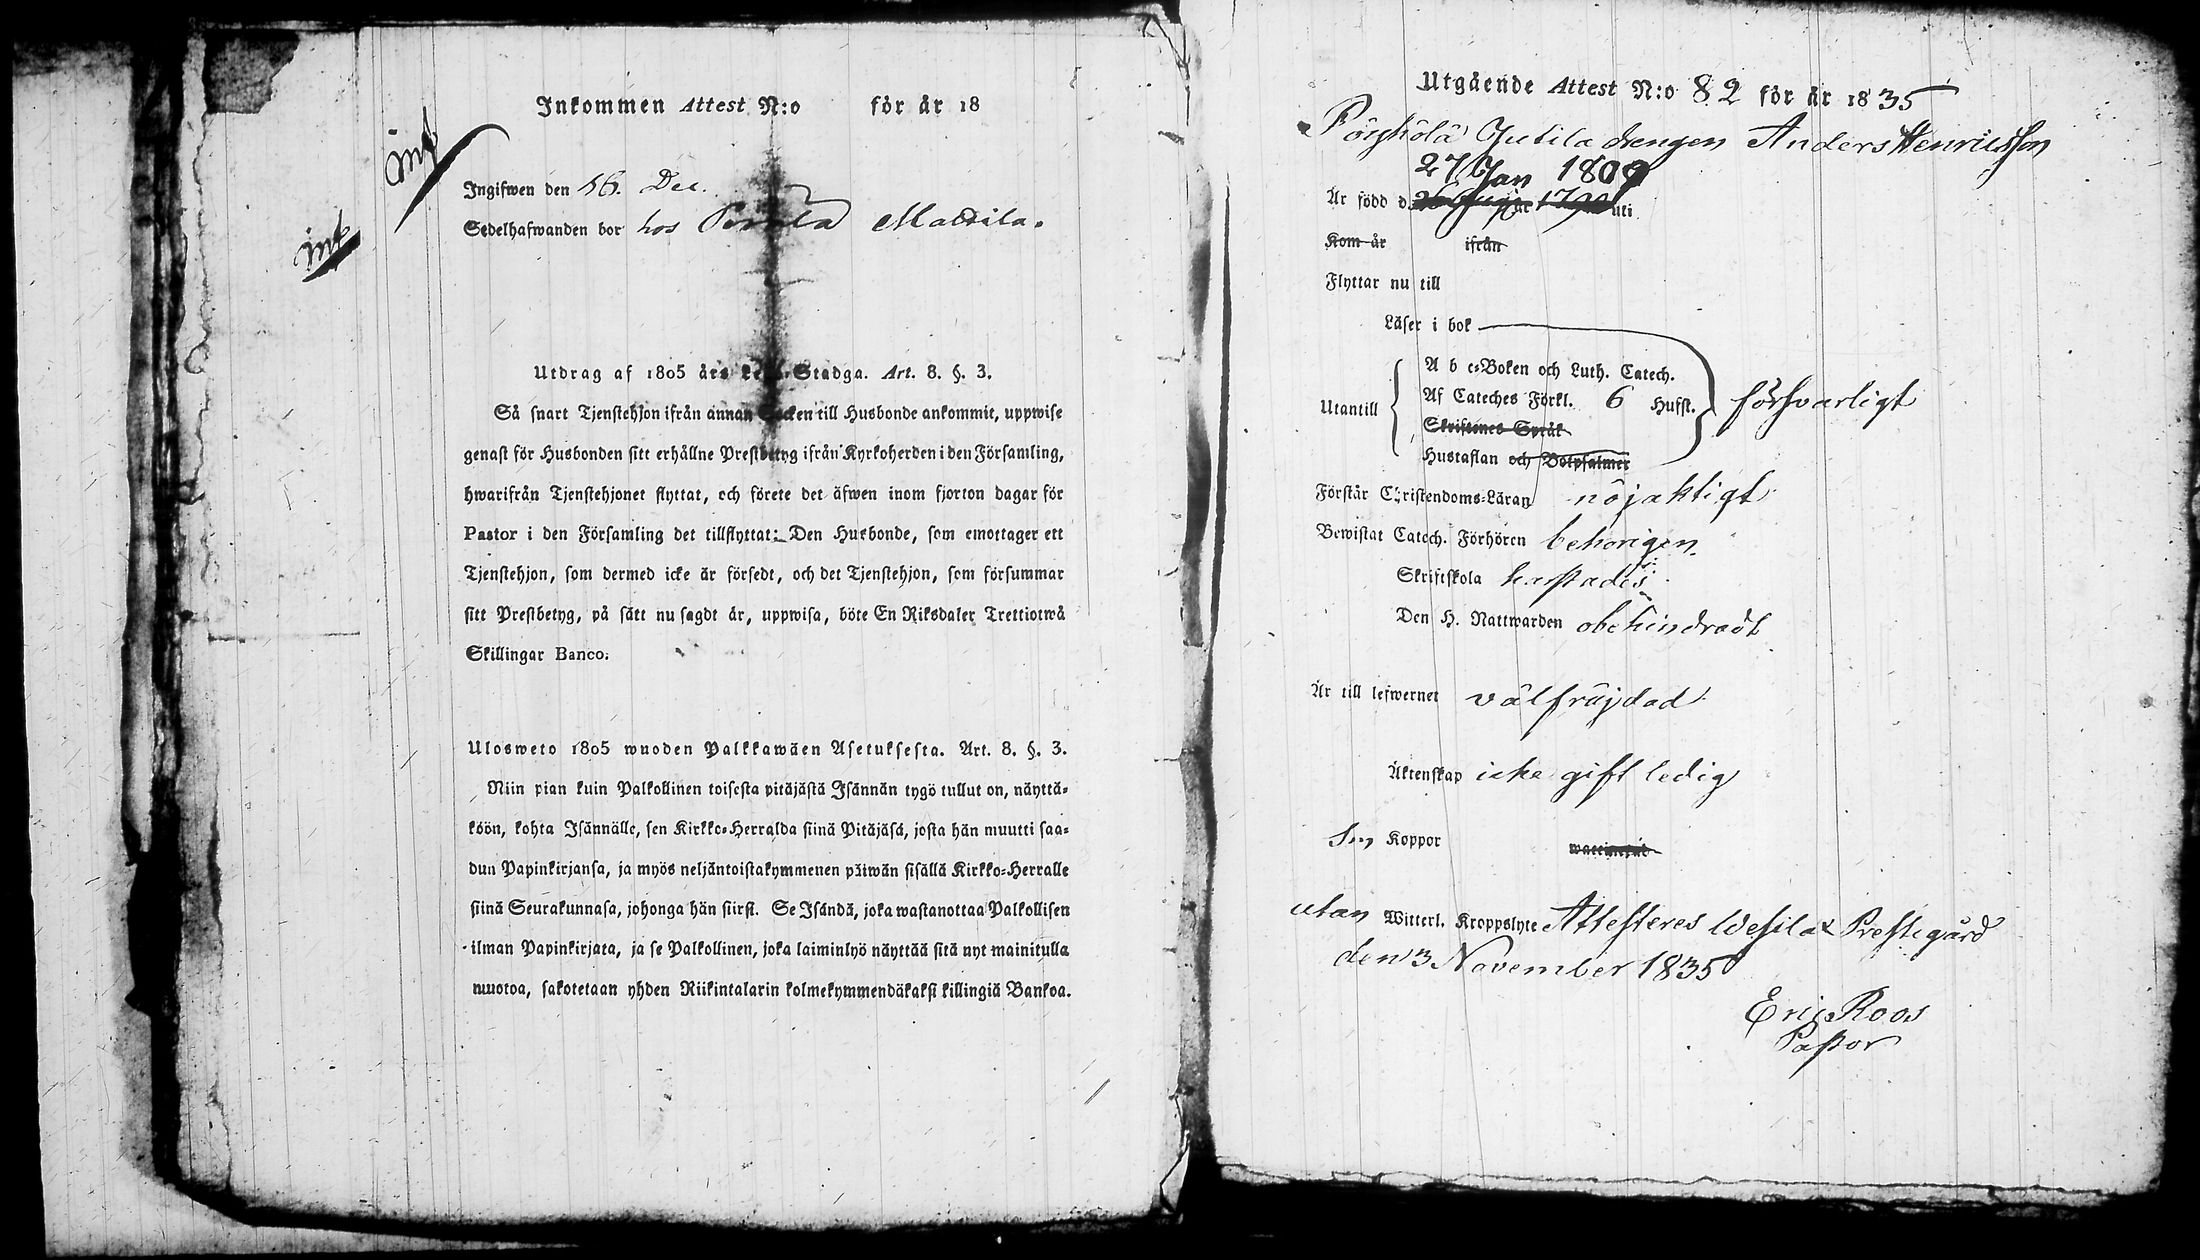 Inkommen Attest N:o för år 18
int
int
Ingifwen den 16. Dec.
Sedelhafwanden bor hos Mattila.
Utdrag af 1805 års Lego-Stadga. Art. 8. §. 3.
Så snart Tjenstehjon ifrån annan Socken till Husbonde ankommit, uppwise
genast för Husbonden sitt erhållne Prestbetyg ifrån Kyrkoherden i den Församling,
hwarifrån Tjenstehjonet flyttat, och förete det äfwen inom fjorton dagar för
Pastor i den Församling det tillflyttat: Den Husbonde, som emottager ett
Tjenstehjon, som dermed icke är försedt, och det Tjenstehjon, som försummar
sitt Prestbetyg, på sätt nu sagdt är, uppwisa, böte En Riksdaler Trettiotwå
Skillingar Banco.
Ulosweto 1805 wuoden Palkkawäen Asetuksesta. Art. 8. §. 3.
Niin pian kuin Palkollinen toisesta pitäjästä Isännän tygö tullut on, näyttä-
köön, kohta Isännälle, sen Kirkko-Herralda siinä Pitäjäsä, josta hän muutti saa-
dun Papinkirjansa, ja myös neljäntoistakymmenen päiwän sisällä Kirkko-Herralle
siinä Seurakunnasa, johonga hän siirst. Se Isändä, joka wastanottaa Palkollisen
ilman Papinkirjata, ja se Palkollinen, joka laiminlyö näyttää sitä nyt mainitulla
muotoa, sakotetaan yhden Riikintalarin kolmekymmendäkaksi killingiä Bankoa.
Utgående Attest N:o 82 för år 1835
Jutila drengen Anders Henricsson
27 Jan 1809
Är född d. 26 år 1790 uti
Kom år ifrån
Flyttar nu till
Läser i bok
A b c-Boken och Luth. Catech.
Utantill Af Cateches Förkl. 6 Hufst. försvarligt
Skriftenes Språk
Hustaflan och Botpsalmer
Förstår Christendoms-Läran nöjaktigt
Bewistat Catech. Förhören behörigen.
Skriftskola
Den H. Nattwarden obehindradt
Är till lefwernet välfräjdad
Äktenskap icke gift ledig
Koppor
utan Witterl. Kroppslyte Attesteres Wesilax Prestegård
den 3 November 1835
Eric Roos
Pastor